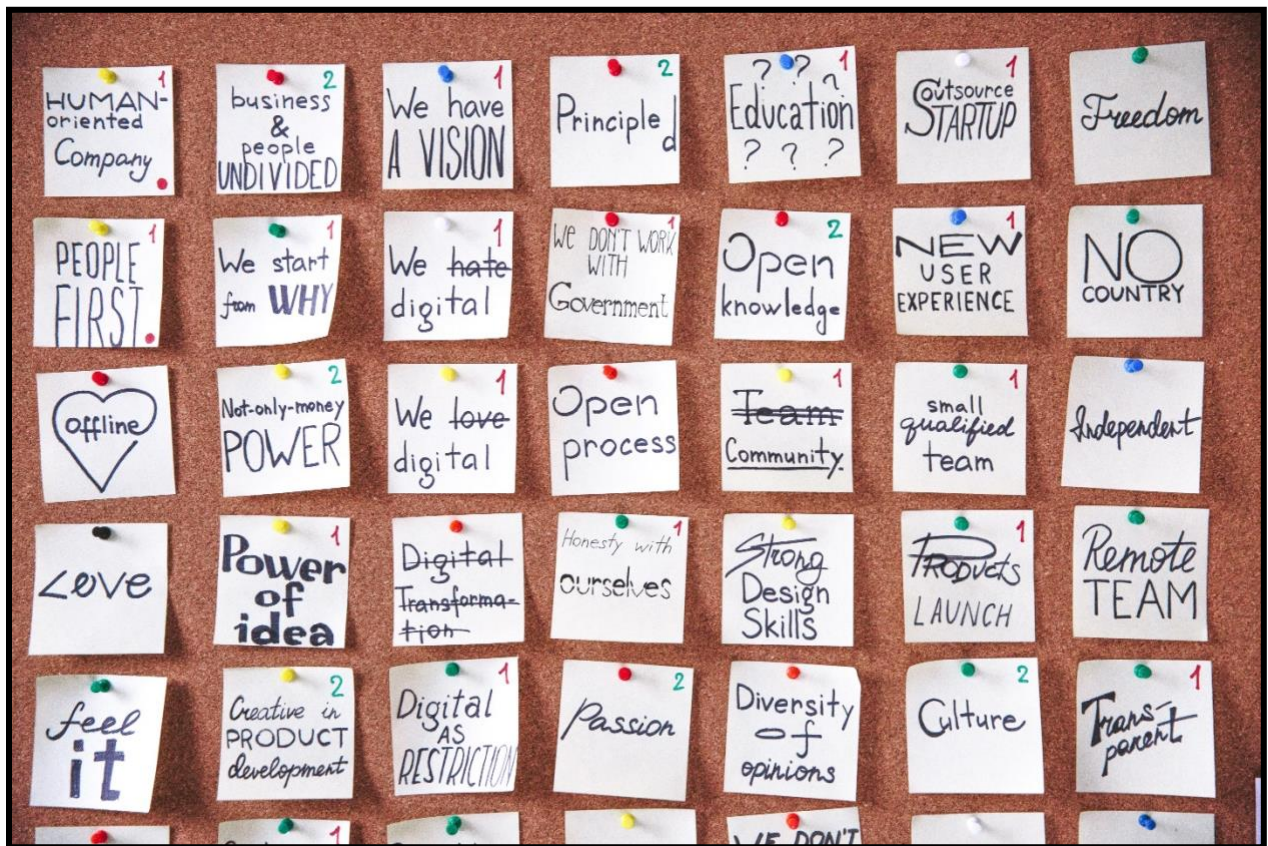 1
HUMAN-
oriented
Company
2
business
&
people
UNDIVIDED
1
We have
A VISION
2
Principled
1
? ? ?
Education
? ? ?
1
Outsource
STARTUP
Freedom
1
PEOPLE
FIRST
1
We start
from WHY
1
We hate
digital
1
WE DON'T WORK
WITH
Government
2
Open
knowledge
1
NEW
USER
EXPERIENCE
NO
COUNTRY
offline
2
Not-only-money
POWER
1
We love
digital
Open
process
1
Team
Community.
1
small
qualified
team
Independent
Love
1
Power
of
idea
Digital
Transforma-
tion
1
Honesty with
ourselves
Strong
Design
Skills
1
PRODUCTS
LAUNCH
Remote
TEAM
feel
it
2
Creative in
PRODUCT
development
1
Digital
AS
RESTRICTION
2
Passion
Diversity
of
opinions
2
Culture
1
Trans-
parent
1
WE DON'T